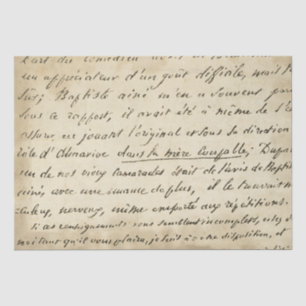 L'art du comédien
un appréciateur d'un goût difficile, mais
sûr; Baptiste aîné m'en a souvent
sous ce rapport; il avait été à même de
en jouant l'original et sous sa direction
rôle d'Almaviva dans la mère Coupable;
un de nos vieux camarades était de l'avis de
aîné, avec une nuance de plus, il le
nerveux, même emporté aux répétitions.
Si ces renseignements vous semblent incomplets,
moi tant qu'il vous plaira, je suis à votre disposition, et